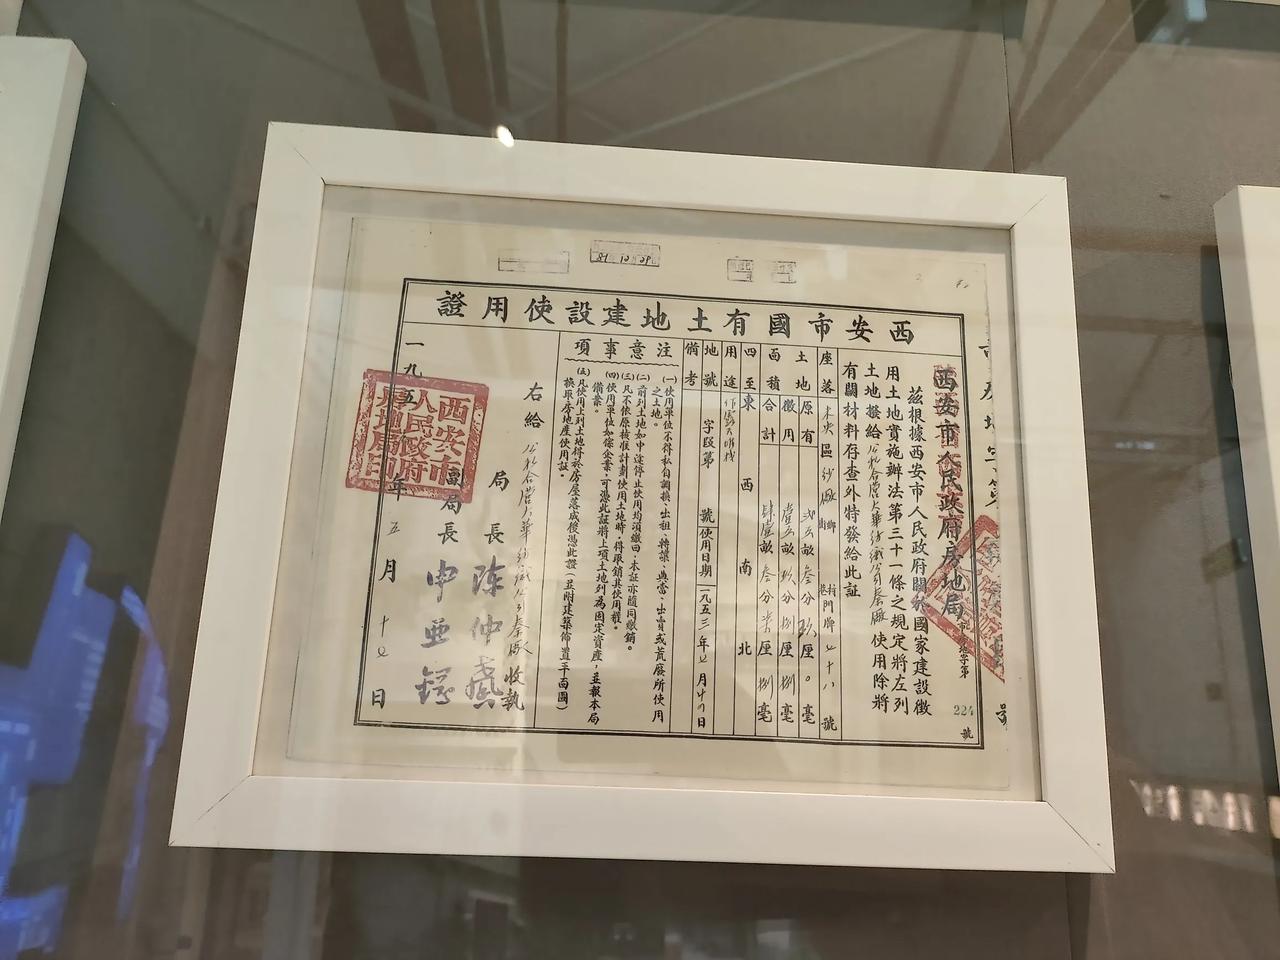 西安市國有土地建設使用證
西安市人民政府房地局
字第
224
號
茲根據西安市人民政府關於國家建設徵
用土地實施辦法第三十一條之規定將左列
土地撥給公私合營大華紡織公司秦廠使用除將
有關材料存查外特發給此証
座落
未央區紗廠街
鄉
村
巷
門牌
七十八
號
土地
面積
原有
畝叁分玖厘。毫
徵用
畝玖分捌厘捌毫
合計
畝叁分柒厘捌毫
四至
東
西
南
北
用途
地號
字段第
號
使用日期
一九五三年七月廿四日
備考
注意事項
(一)使用單位不得私自調換、出租、轉讓、典當、出賣或荒廢所使用
之土地。
(二)前列土地如中途停止使用均須繳回,本証亦隨同繳銷。
(三)凡不依原核准計劃使用土地時,得取銷其使用權。
(四)使用單位如係企業,可憑此証將上項土地列為固定資產,並報本局
備案。
(五)凡使用上列土地得於房屋落成後憑此證(並附建築佈置平面圖)
換取房地產使用証。
右給
公私合營大華紡織公司秦廠收執
局長
陈仲
副局長
申
一九五
年五月十七日
西安市
人民政府
房地局印